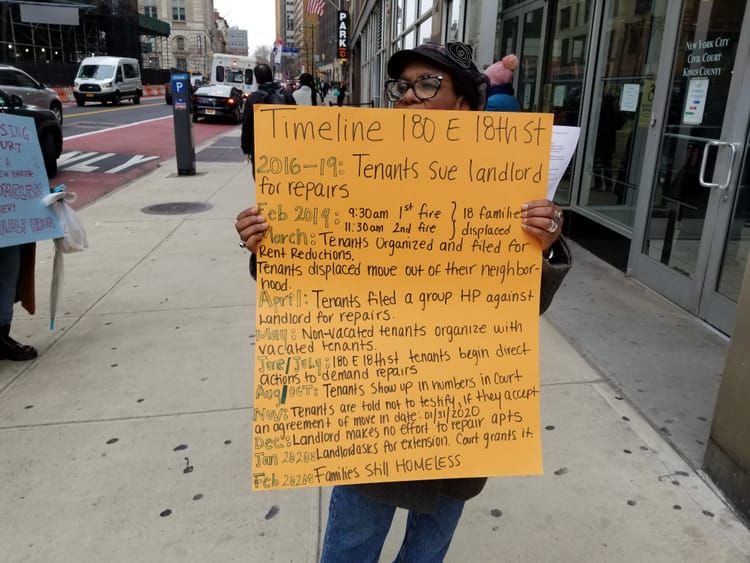 Timeline 180 E 18th st
2016-19: Tenants Sue landlord
for repairs
Feb 2019: 9:30am 1st fire } 18 families
11:30am 2nd fire } displaced
March: Tenants Organized and filed for
Rent Reductions.
Tenants displaced move out of their neighbor-
hood.
April: Tenants filed a group HP against
Landlord for repairs.
May: Non-vacated tenants organize with
vacated tenants.
June/July: 180 E 18th st tenants begin direct
actions to demand repairs
Aug/Oct: Tenants show up in numbers in Court
Nov: Tenants are told not to testify, if they accept
an agreement of move in date: 01/31/2020
Dec: Landlord makes no effort to repair apts
Jan 2020: Landlord asks for extension. Court grants it.
Feb 2020: Families Still HOMELESS
NEW YORK CITY
CIVIL COURT
KINGS COUNTY
PARK
P
ONLY
COURT
A
EVERY
HALF HOUR